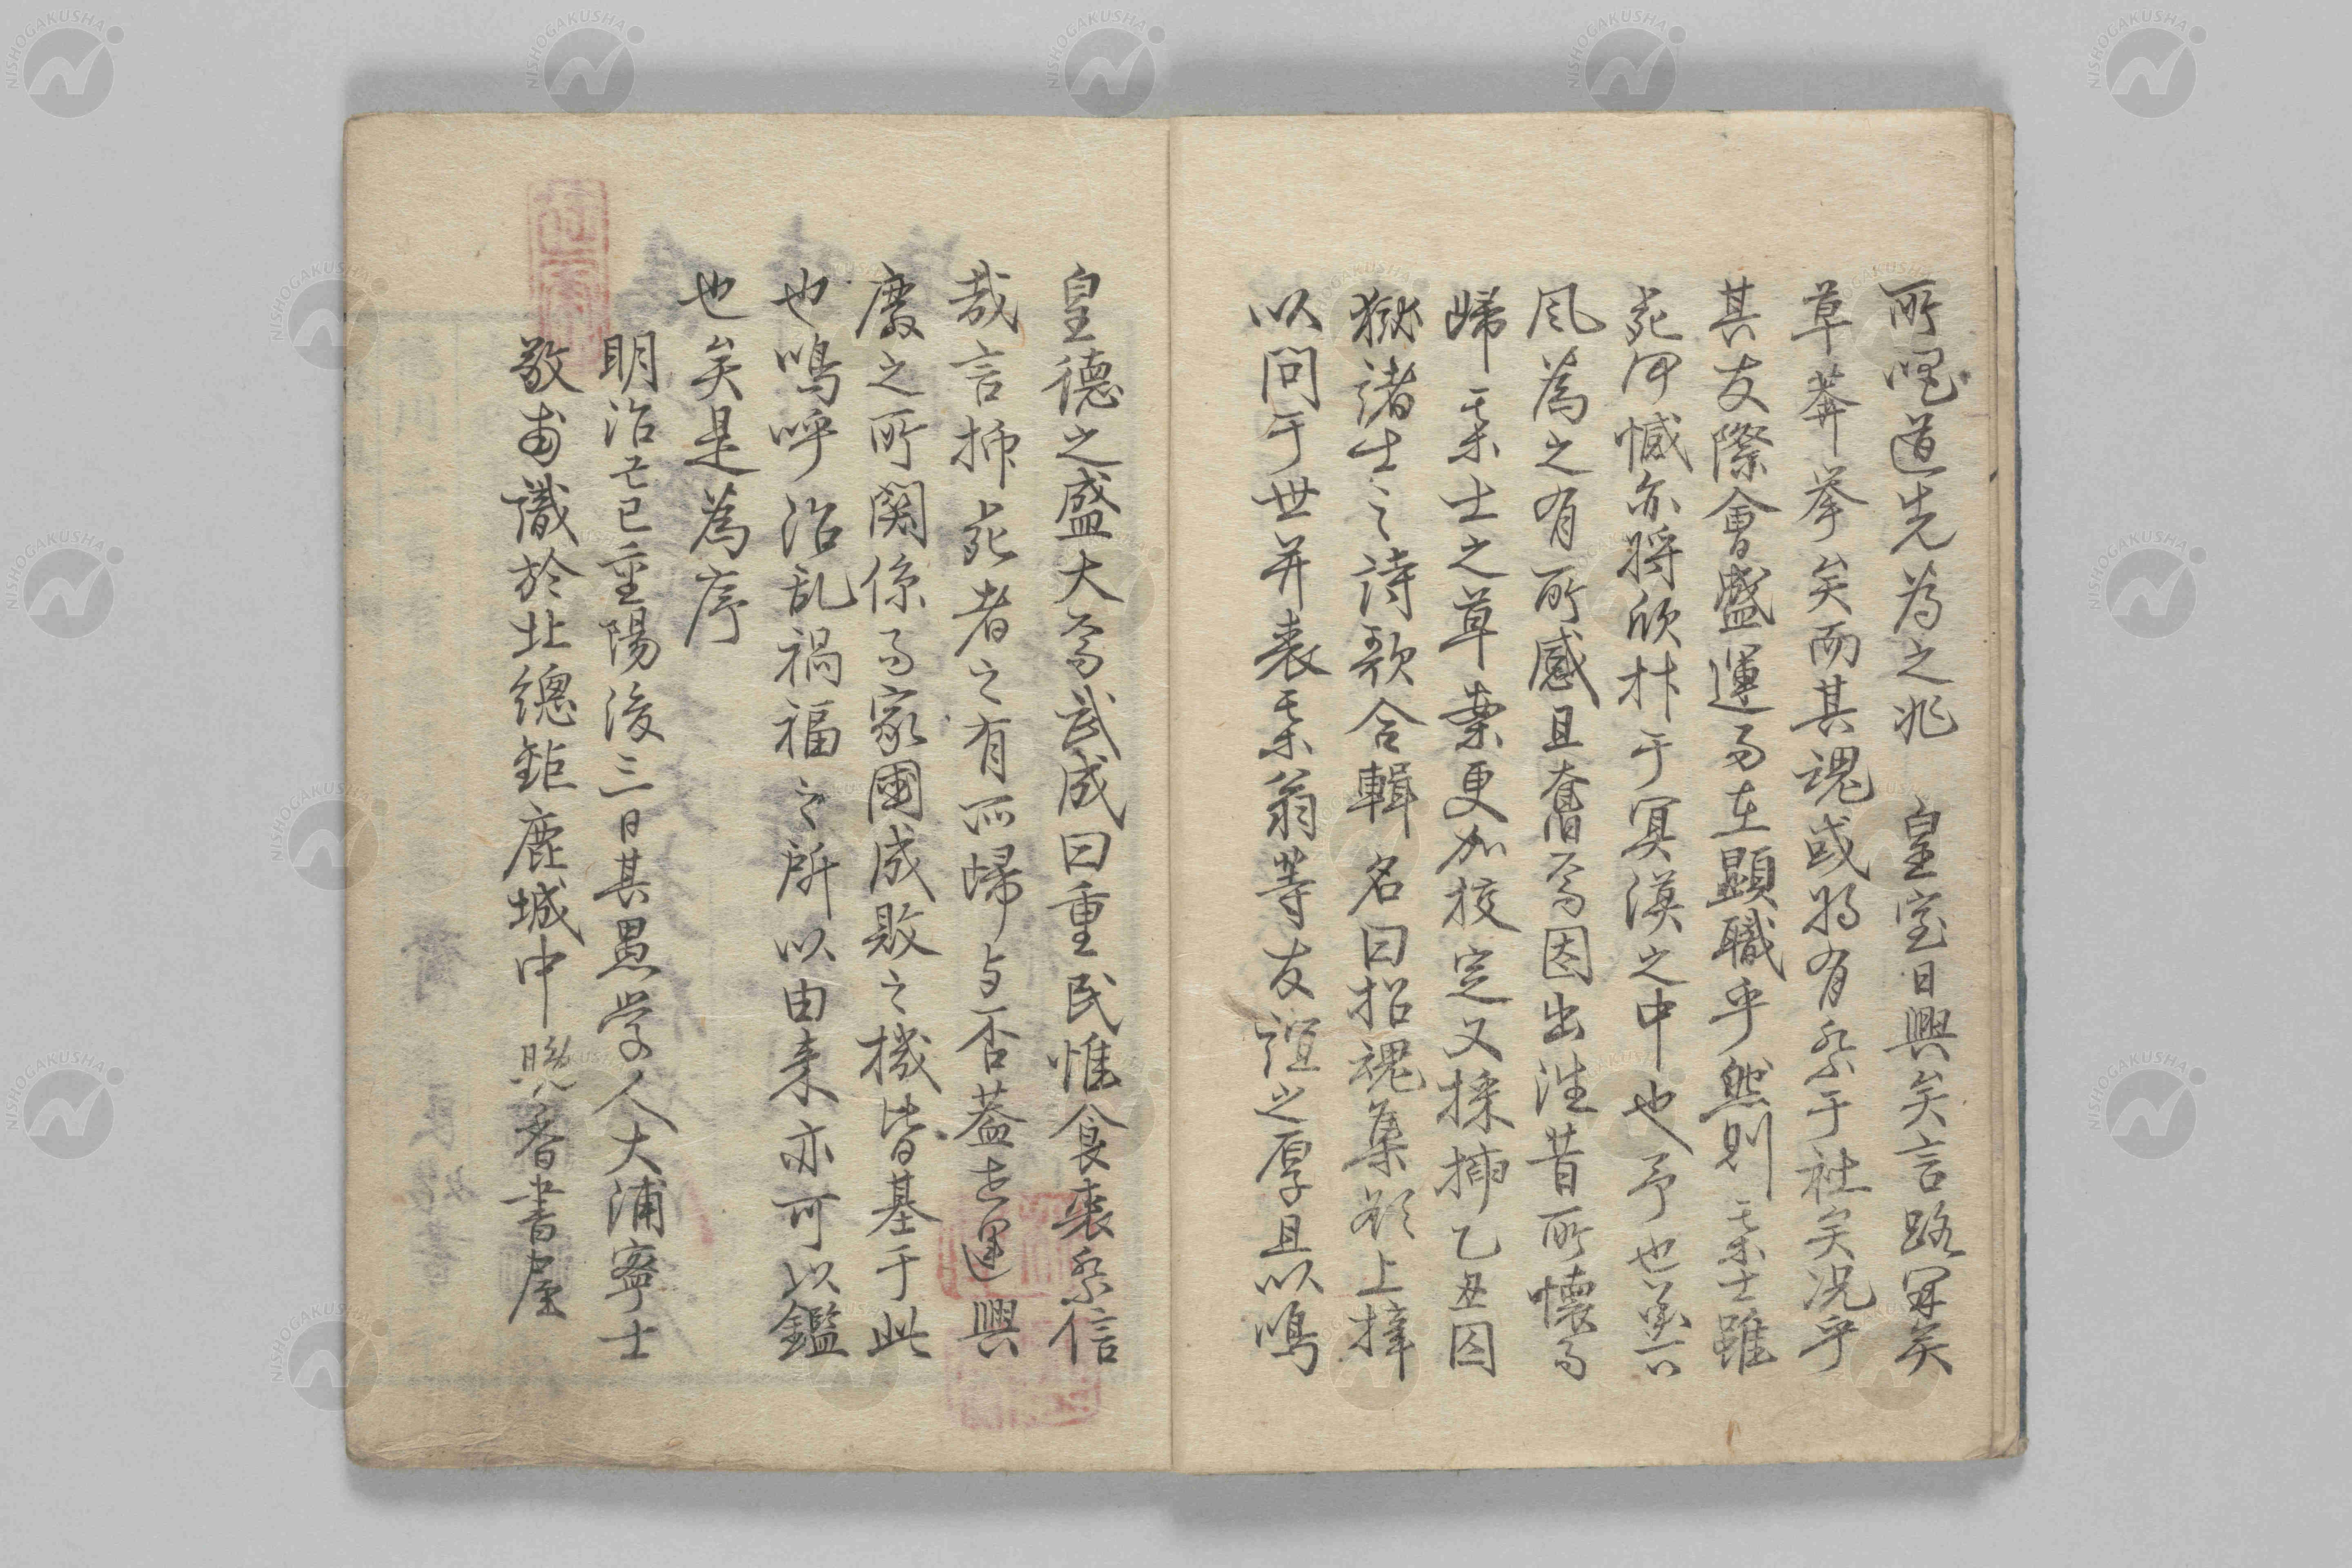 所唱道先為之兆　皇室日興矣言路開矣
草莽挙矣而其魂或将有祭于社矣況乎
其友際會盛運而在顕職乎然則某士雖
死何憾亦将欣抃于冥漠之中也予也並下
風為之有所感且奮焉因出注昔所懐而
帰某士之草藁更加校定又採挿乙丑囚
獄諸生之詩歌合輯名曰招魂集欲上梓
以問于世并表某翁等友誼之厚且以鳴
皇德之盛大焉武成曰重民惟食喪祭信
哉言抑死者之有所帰与否蓋世運興
廃之所関係而家國成敗之機皆基于此
也嗚呼治乱禍福之所以由来亦可以鑑
也矣是為序
明治己巳重陽後三日其愚学人大浦寧士
敬甫識於北總鉅鹿城中晩香書屋
NISHOGAKUSHA